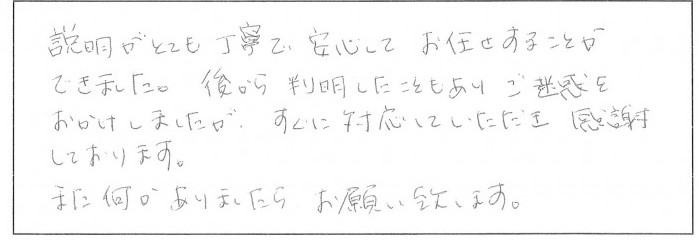 説明がとても丁寧で、安心して お任せすることが
できました。後から判明したこともあり ご迷惑を
おかけしましたが、すぐに対応していただき 感謝
しております。
また何かありましたら お願い致します。